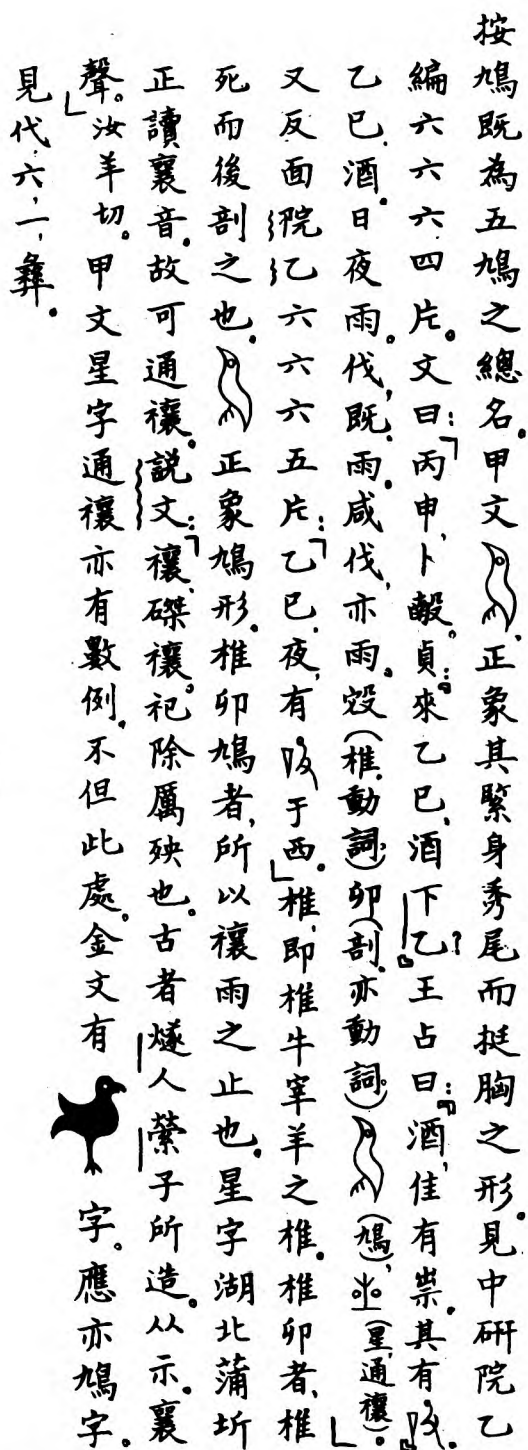 按鳩既為五鳩之總名。甲文，正象其緊身秀尾而挺胸之形。見中研院乙
編六六六四片。文曰：「丙申，卜㱿。貞：『來乙巳，酒下乙？』王占曰：『酒，隹有祟。其有。』
乙巳，酒。日夜雨。伐，既雨。咸伐，亦雨。㱿（椎，動詞）卯（剖，亦動詞）（鳩），（星，通禳）。」
又反面院乙六六六五片：「乙巳，夜，有于西。」椎，即椎牛宰羊之椎。椎卯者，椎
死而後剖之也。正象鳩形。椎卯鳩者，所以禳雨之止也。星字湖北蒲圻
正讀襄音。故可通禳。説文：「禳，磔禳。祀除厲殃也。古者燧人禜子所造。从示。襄
聲。」汝羊切。甲文星字通禳亦有數例。不但此處。金文有字。應亦鳩字。
見代六，一，彝。